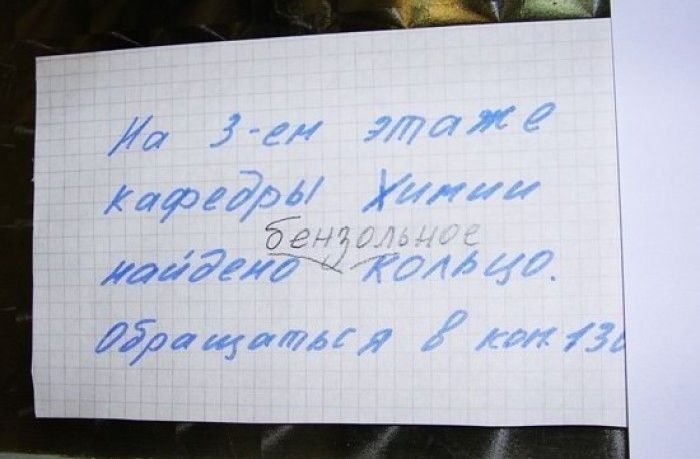 На 3-ем этаже
кафедры Химии
бензольное
найдено кольцо.
Обращаться в